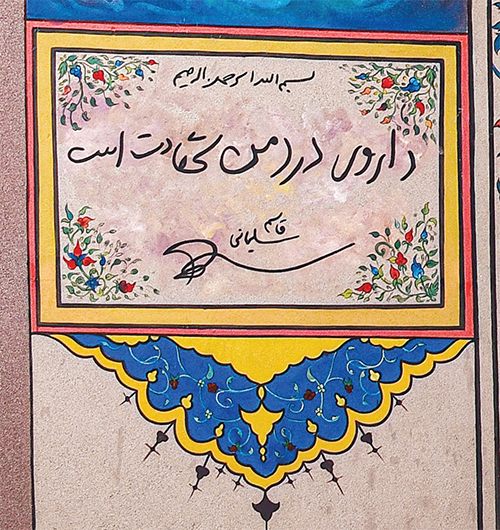 بسم الله الرحمن الرحیم
داروی درد من شهادت است
قاسم
سلیمانی